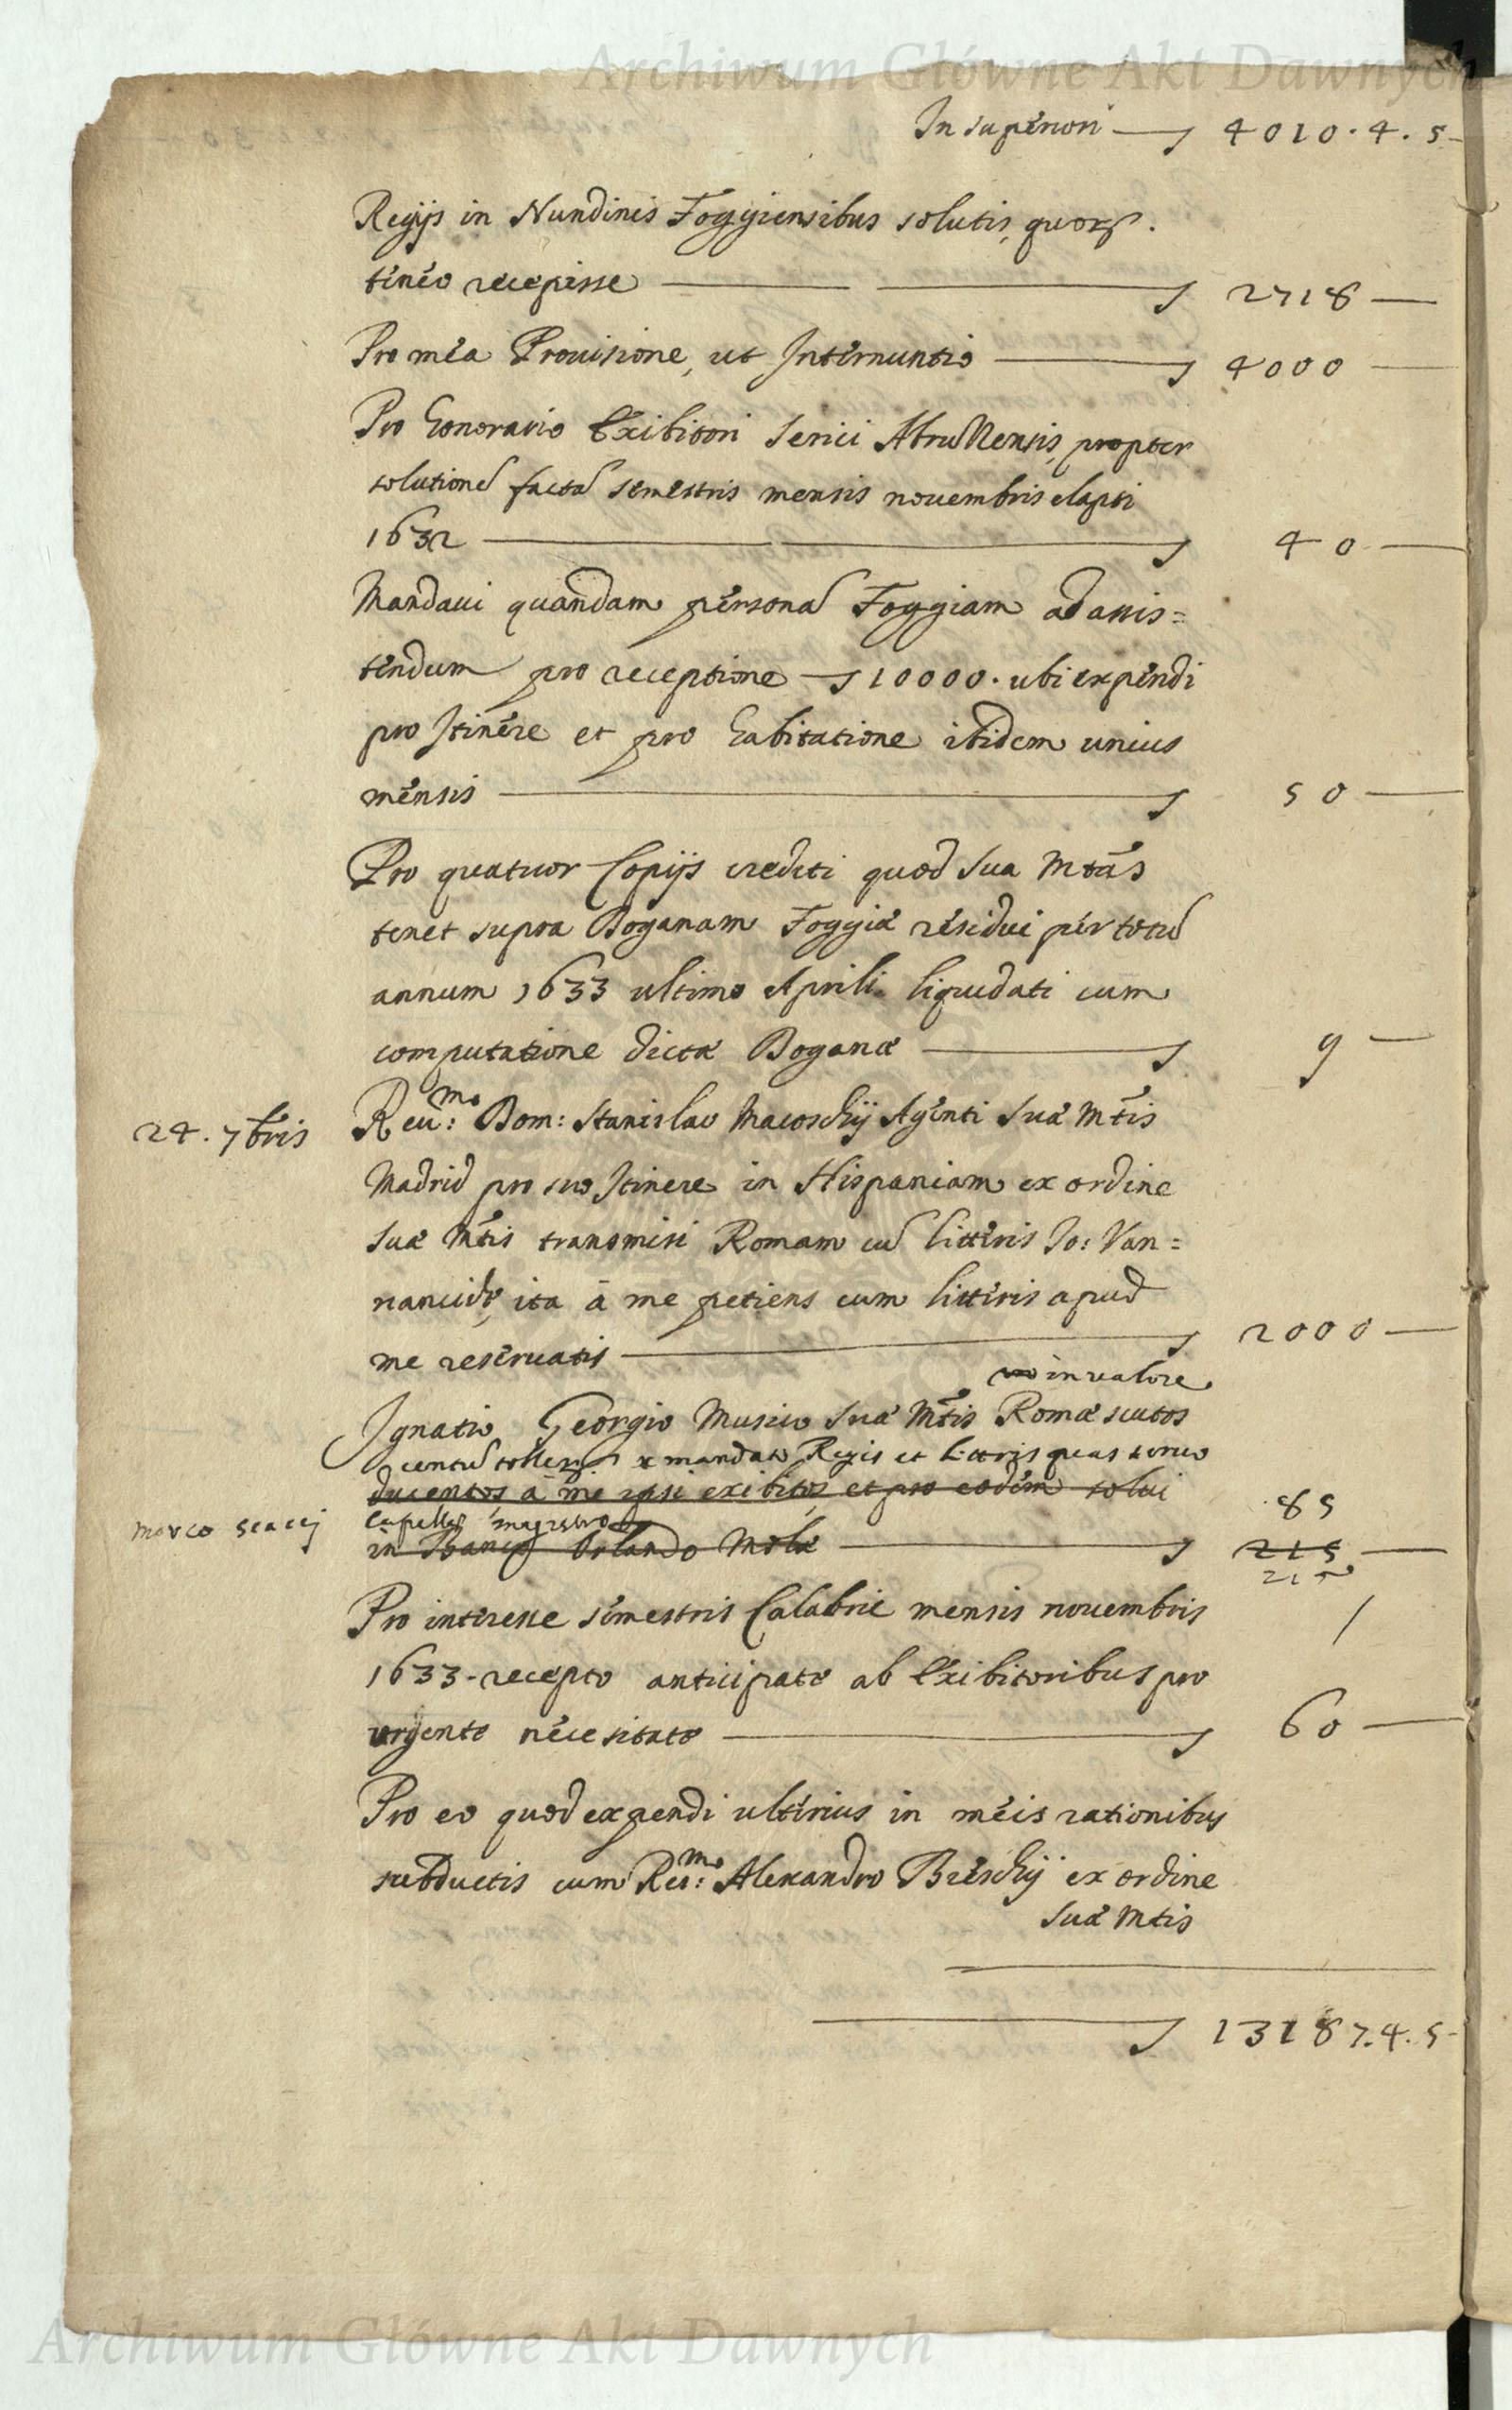 Archiwum Główne Akt Dawnych
In superiori 4010. 4. 5
Regijs in Nundinis Foggiensibus solutis, quorz.
teneo recepisse 2718
Pro mea Prouisione, ut Internuntio 4000
Pro honorario Exibitori Serici Abrutiensis, propter
solutione facta semestris mensis nouembris elapsi
1632 40
Mandaui quandam persona Foggiam ad assis=
tendum pro receptione 10000. ubi expendi
pro Itinere et pro habitatione ibidem unius
mensis 50
Pro quatuor Copijs crediti quod Sua Mtas
tenet supra Doganam Foggiæ residui per totu
annum 1633 ultimo Aprili liquidati cum
computatione dictæ Doganæ 9
24. 7bris Reu:mo Dom: Stanislao Macoschij Agenti Suæ Mtis
Madrid pro suo Itinere in Hispaniam ex ordine
Suæ Mtis transmisi Romam cu litteris Jo: Van=
nancidi, ita à me petiens cum litteris apud
me reseruatis 2000
in ualore
Ignatio Georgio Musico Suæ Mtis Romæ scutos
centu ex mandato Regis et litteris quas teneo
ducentos à me ipsi exibitos et pro eodem solui
marco scacej capellæ magistro 85
in Banco Orlando Mola 215
Pro interesse semestris Calabrie mensis nouembris
1633 recepto anticipato ab Exibitoribus pro
urgente necesitate 60
Pro eo quod expendi ulterius in meis rationibus
subductis cum Reu:mo Alexandro Breschij ex ordine
Suæ Mtis
13187. 4. 5
Archiwum Główne Akt Dawnych